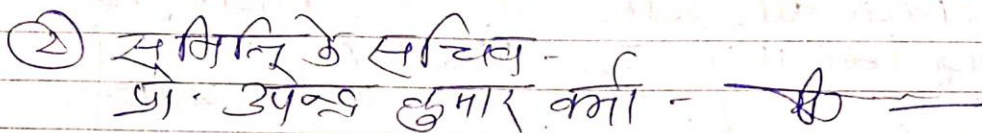 ② समिति के सचिव -
प्रो. उपेन्द्र कुमार वर्मा -